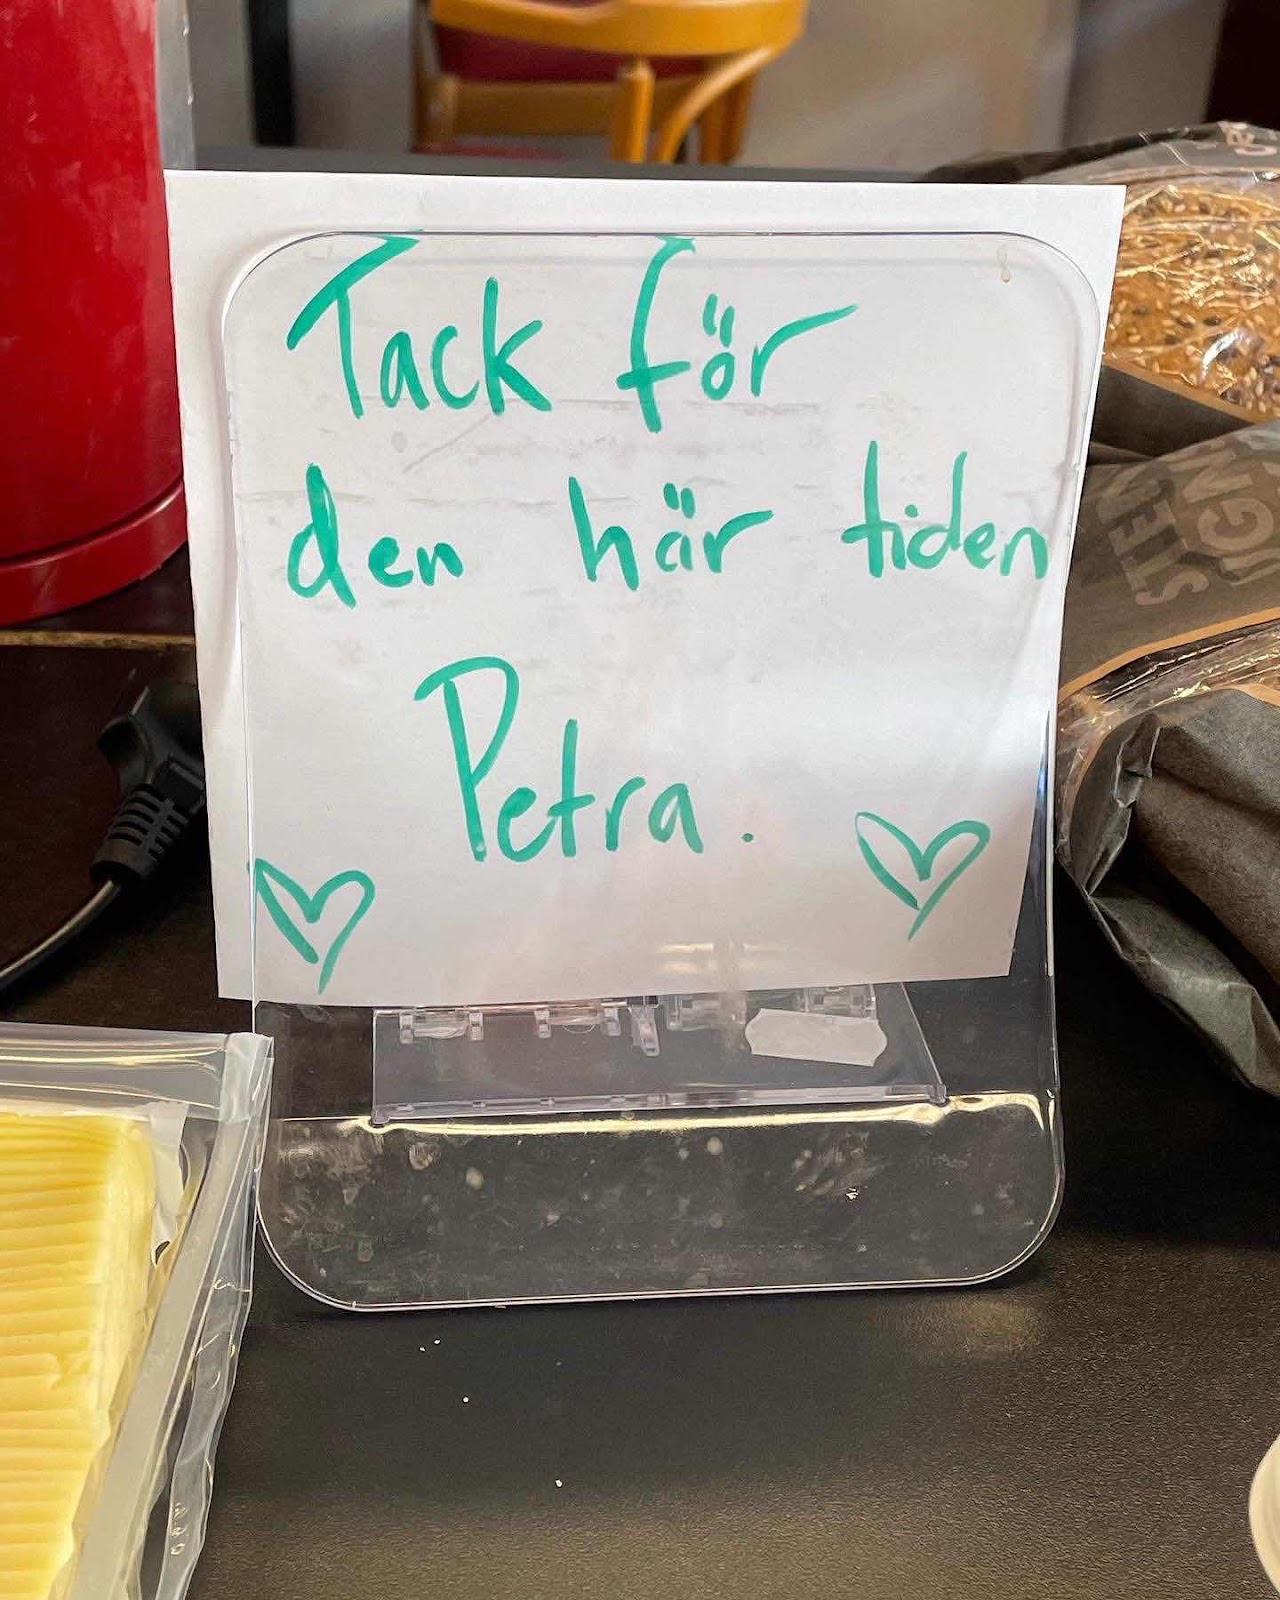 Tack för
den här tiden
Petra.
STEN
UGN